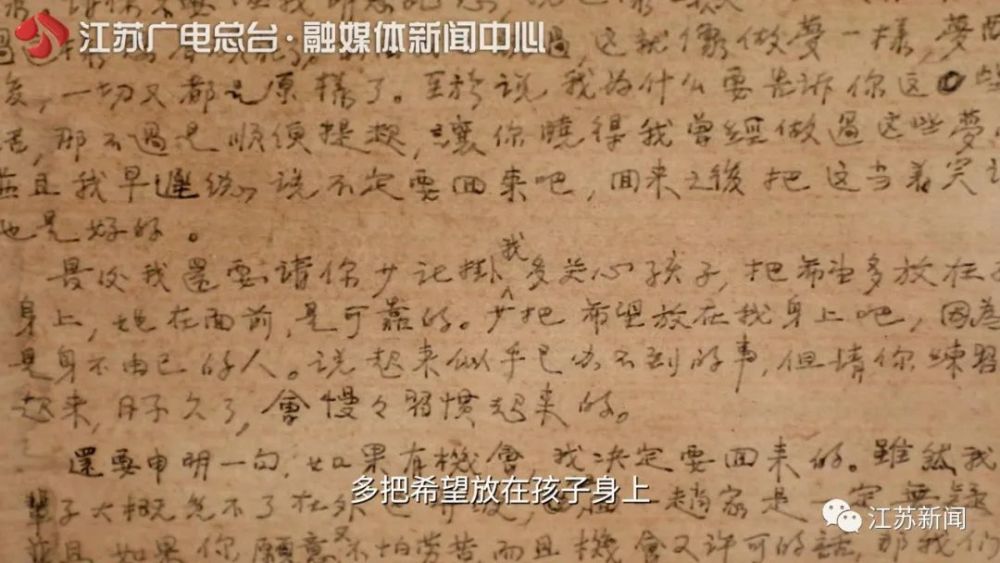 江苏广电总台·融媒体新闻中心
過，這就像做夢一樣，夢
後，一切又都是原樣了。至於说我为什么要告诉你这些
那不過是順便提起，讓你曉得我曾經做過这些夢
并且我早遲说不定要回来吧，回来之後把这当着笑
也是好的。
最後我還要請你少记掛我多关心孩子，把希望多放在
身上，现在面前，是可靠的。少把希望放在我身上吧，因為
是身不由己的人。说起来似乎已办不到的事，但请你練習
起来，日子久了，會慢々習慣起来的。
還要申明一句，如果有機會，我决定要回来的。雖然我
輩子大概免不了在外 趙家是一定無疑
並且如果你願意又不怕劳苦，而且機會又许可的話，那我们
多把希望放在孩子身上
江苏新闻